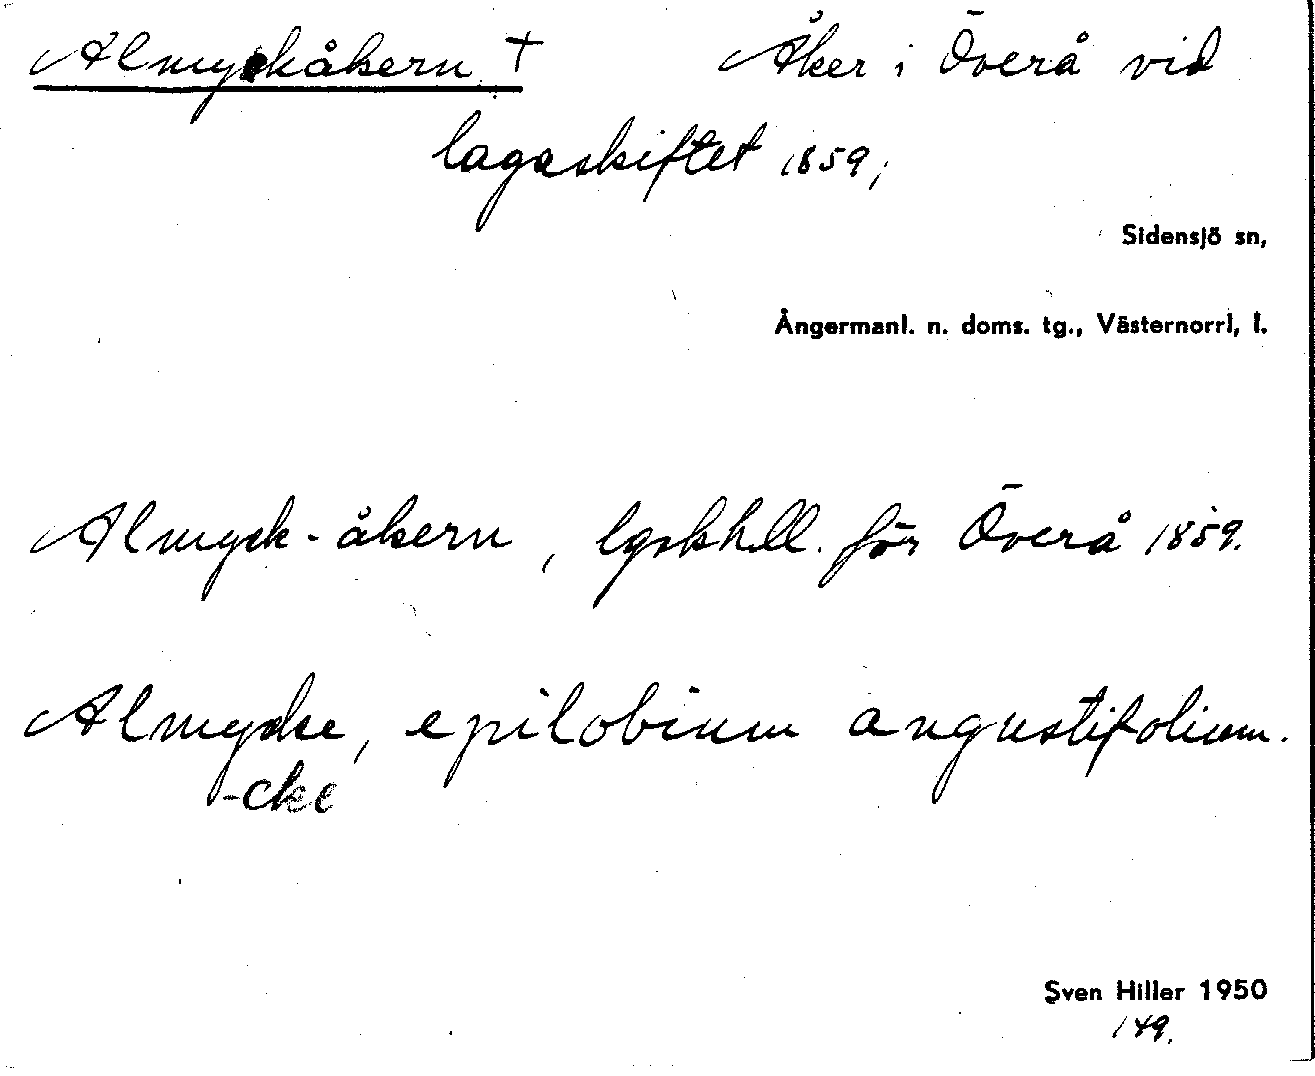 Almyckåkern † Åker i Överå vid
lagaskiftet 1859;
Sidensjö sn,
Ångermanl. n. doms. tg., Västernorrl, l.
Almyck-åkern, lgskhdl. för Överå 1859.
Almycke, epilobium angustifolium.
-cke
Sven Hiller 1950
149.